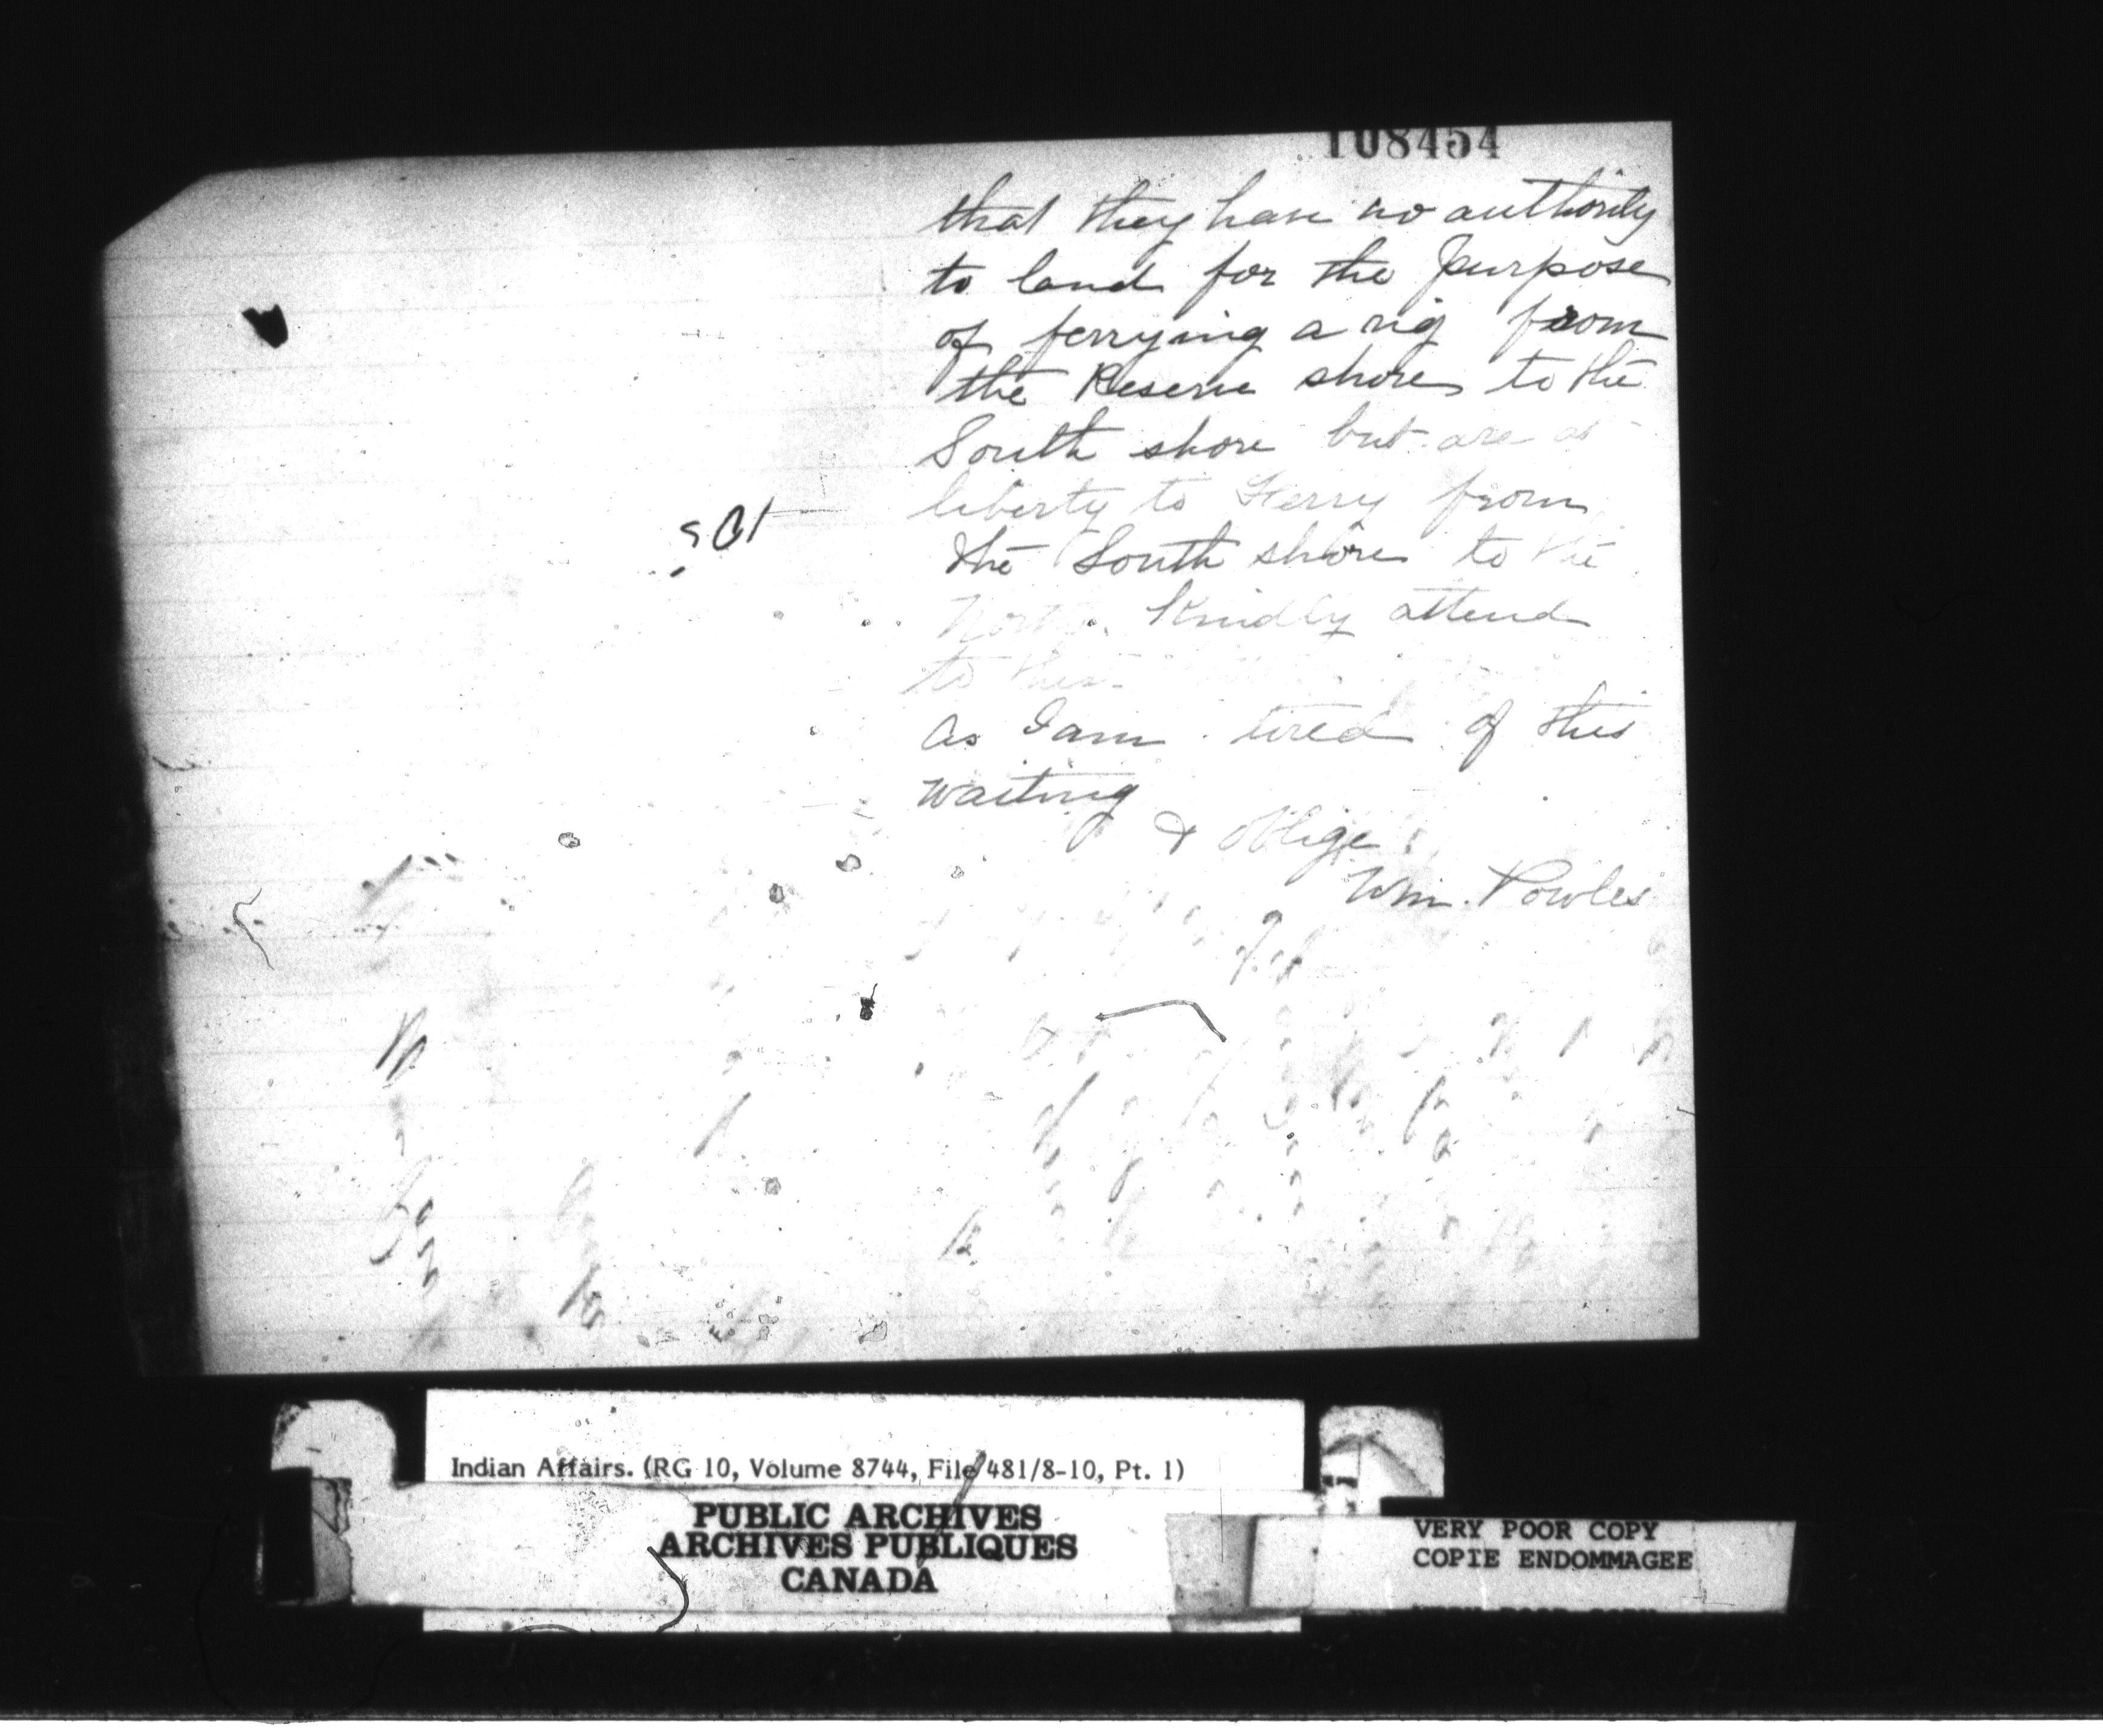 108454
that they have no authority
to land for the Purpose
of ferrying a rig from
the Reserve shore to the
South shore but are at
liberty to Ferry from
the South shore to the
North. Kindly attend
to this
as I am tired of this
waiting
& oblige
Wm. Powles
Indian Affairs. (RG 10, Volume 8744, File 481/8-10, Pt. 1)
PUBLIC ARCHIVES
ARCHIVES PUBLIQUES
CANADA
VERY POOR COPY
COPIE ENDOMMAGEE